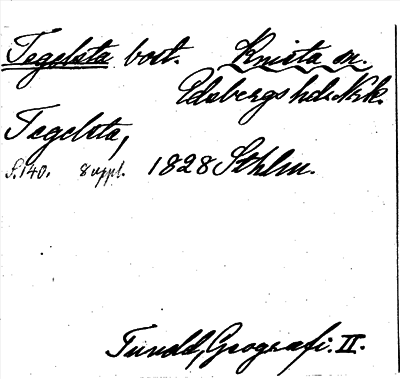 Tegelsta bost. Knista sn.
Edsbergs hd. Nrk.
Tegelsta,
s. 140. 8 uppl. 1828 Sthlm.
Tuneld, Geografi. II.